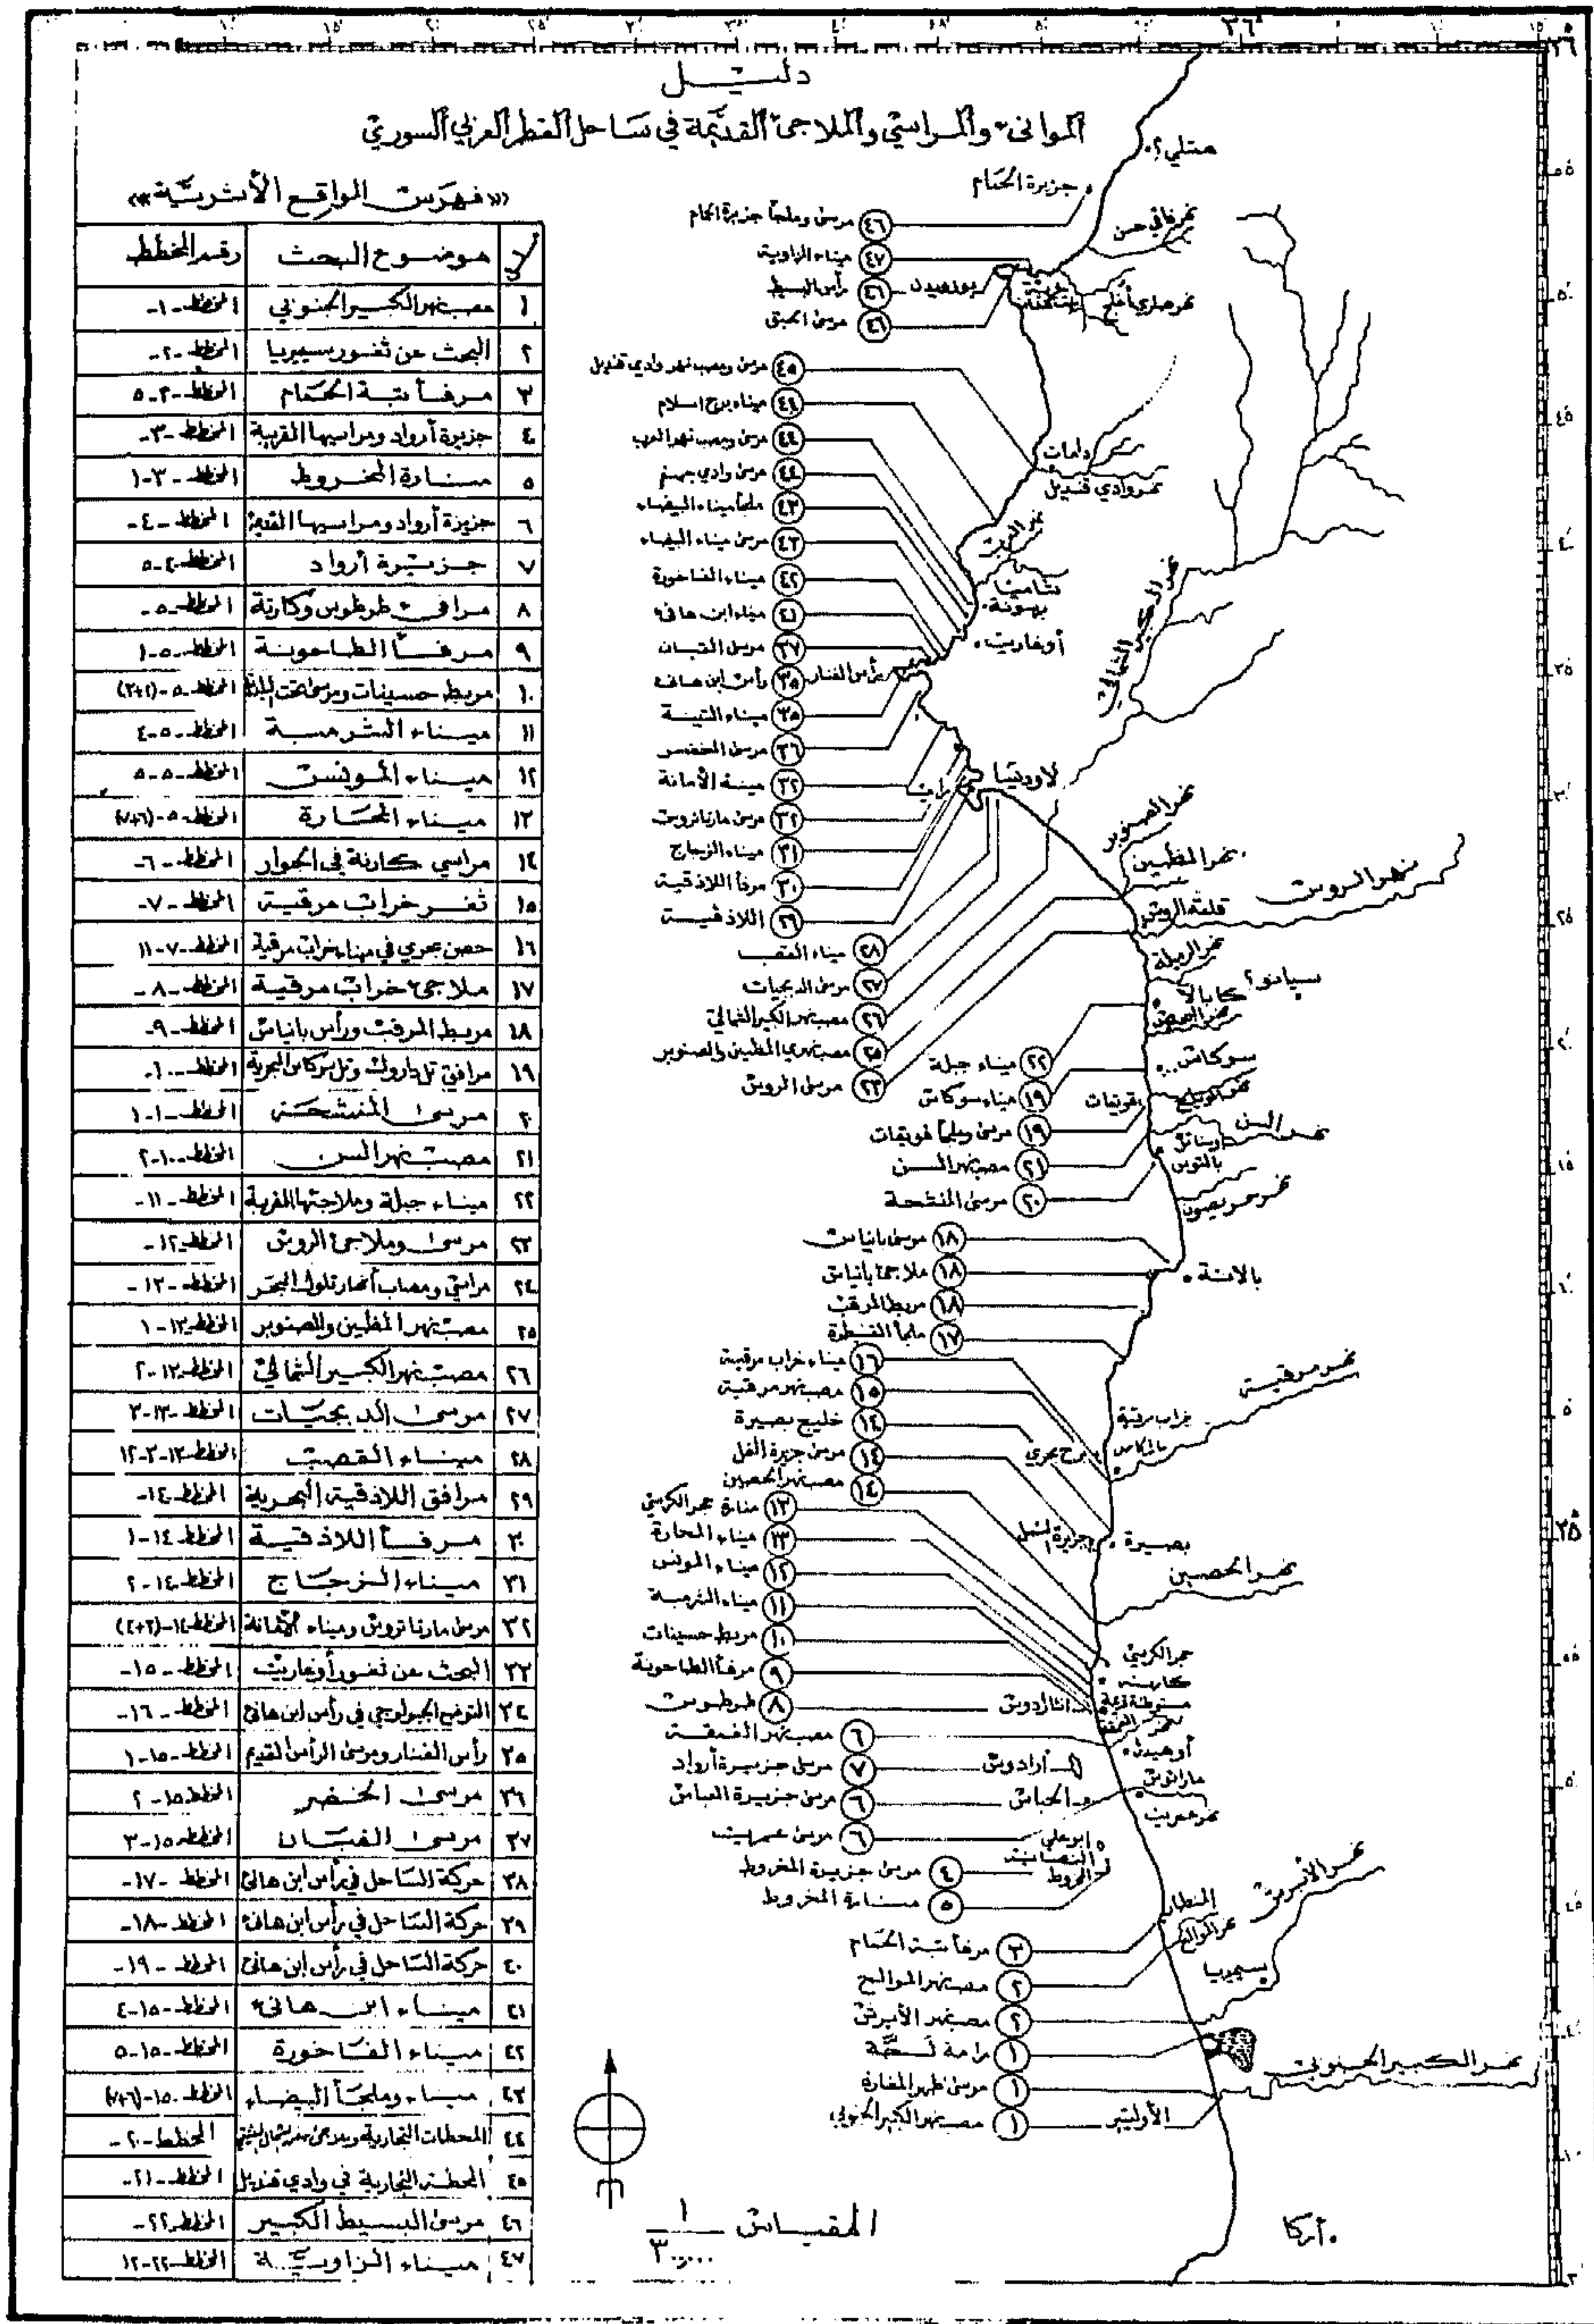 دليل
الموانئ والمراسي والملاجئ القديمة في ساحل القطر العربي السوري
«فهرس المواقع الأثرية»
موضوع البحث رقم المخطط
١ مصب نهر الكبير الجنوبي المخطط -١-
٢ البحث عن ثغور سيميريا المخطط -٢-
٣ مرفأ تبة الحمام المخطط -٢-٥
٤ جزيرة أرواد ومراسيها القريبة المخطط -٣-
٥ منارة المخروط المخطط -٣-١
٦ جزيرة أرواد ومراسيها القديمة المخطط -٤-
٧ جزيرة أرواد المخطط -٤-٥
٨ مرافئ طرطوس وكارنة المخطط -٥-
٩ مرفأ الطاحونة المخطط -٥-١
١٠ مربط حسينات ومرسى تحت المخطط -٥-(٢+٣)
١١ ميناء الشرمية المخطط -٥-٤
١٢ ميناء المونس المخطط -٥-٥
١٣ ميناء المحارة المخطط -٥-(٦+٧)
١٤ مراسي كارنة في الجوار المخطط -٦-
١٥ ثغر خراب مرقية المخطط -٧-
١٦ حصن بحري في ميناء خراب مرقية المخطط -٧-١١
١٧ ملاجئ خراب مرقية المخطط -٨-
١٨ مربط المرقب ورأس بانياس المخطط -٩-
١٩ مرافئ تل داروك وتل سوكاس البحرية المخطط -١٠-
٢٠ مرسى المنشحة المخطط -١٠-١
٢١ مصب نهر السن المخطط -١٠-٢
٢٢ ميناء جبلة وملاجئها القريبة المخطط -١١-
٢٣ مرسى وملاجئ الروس المخطط -١٢-
٢٤ مراسي ومصاب أنهار تلوك البحر المخطط -١٣-
٢٥ مصب نهر المظيين والصنوبر المخطط -١٣-١
٢٦ مصب نهر الكبير الشمالي المخطط -١٣-٢
٢٧ مرسى الدبجيات المخطط -١٣-٣
٢٨ ميناء القصب المخطط -١٣-٣-١٢
٢٩ مرافق اللاذقية البحرية المخطط -١٤-
٣٠ مرفأ اللاذقية المخطط -١٤-١
٣١ ميناء الزجاج المخطط -١٤-٢
٣٢ مرسى مارتاتروس وميناء الأمانة المخطط -١٤-(٣+٤)
٣٣ البحث عن ثغور أوغاريت المخطط -١٥-
٣٤ التوضع الجيولوجي في رأس ابن هانئ المخطط -١٦-
٣٥ رأس الفنار ومرسى الرأس القديم المخطط -١٥-١
٣٦ مرسى الخضر المخطط -١٥-٢
٣٧ مرسى القبان المخطط -١٥-٣
٣٨ حركة الساحل في رأس ابن هانئ المخطط -١٧-
٣٩ حركة الساحل في رأس ابن هانئ المخطط -١٨-
٤٠ حركة الساحل في رأس ابن هانئ المخطط -١٩-
٤١ ميناء ابن هانئ المخطط -١٥-٤
٤٢ ميناء الفاخورة المخطط -١٥-٥
٤٣ ميناء وملجأ البيضاء المخطط -١٥-(٦+٧)
٤٤ المحطات التجارية المخطط -٢٠-
٤٥ المحطة التجارية في وادي قنديل المخطط -٢١-
٤٦ مرسى البسيط الكبير المخطط -٢٢-
٤٧ ميناء الزاوية المخطط -٢٢-١٢
مرسى وملجأ جزيرة الحمام ٤٦
ميناء الزاوية ٤٧
رأس البسيط ٤٦
٤٦
مرسى ومصب نهر وادي قنديل ٤٥
ميناء برج اسلام ٤٤
مرسى ومصب نهر العرب ٤٤
مرسى وادي جهنم ٤٤
ملجأ ميناء البيضاء ٤٣
مرسى ميناء البيضاء ٤٣
ميناء الفاخورة ٤٢
ميناء ابن هانئ ٤١
مرسى القبان ٣٧
رأس ابن هانئ ٣٥
ميناء التينة ٣٥
مرسى الخضر ٣٦
مينة الأمانة ٣٢
مرسى مارتاتروس ٣٢
ميناء الزجاج ٣١
مرفأ اللاذقية ٣٠
اللاذقية ٢٩
ميناء القصب ٢٨
مرسى الدبجيات ٢٧
مصب نهر الكبير الشمالي ٢٦
مصب نهري المظيين والصنوبر ٢٥
مرسى الروس ٢٣
ميناء جبلة ٢٢
ميناء سوكاس ١٩
مرسى وملجأ قويقات ١٩
مصب نهر السن ٢١
مرسى المنشحة ٢٠
مرسى بانياس ١٨
ملاجئ بانياس ١٨
مربط المرقب ١٨
ملجأ القنطرة ١٧
ميناء خراب مرقية ١٦
مصب نهر مرقية ١٥
خليج بصيرة ١٤
مرسى جزيرة النمل ١٤
مصب نهر الحصين ١٤
منارة حجر الكرسي ١٣
ميناء المحارة ١٣
ميناء المونس ١٢
ميناء الشرمية ١١
مربط حسينات ١٠
مرفأ الطاحونة ٩
طرطوس ٨
مصب نهر الغمقة ٦
مرسى جزيرة أرواد ٧
مرسى جزيرة العباس ٦
مرسى عمريت ٦
مرسى جزيرة المخروط ٤
منارة المخروط ٥
مرفأ تبة الحمام ٣
مصب نهر الموالح ٢
مصب نهر الأبرش ٢
رامة لحة ١
مرسى ظهر المغارة ١
مصب نهر الكبير الجنوبي ١
جزيرة الحمام
بوزيدون
دلمات
نهر وادي قنديل
بهونة
أوغاريت
رأس الفنار
نهر الكبير الشمالي
لاودقيا
نهر الصنوبر
نهر المظيين
نهر الروس
قلعة الروس
نهر الرميلة
سيانو؟
كابالا
سوكاس
قويقات
نهر السن
بالتوس
نهر حريصون
بالانة
نهر مرقية
خراب مرقية
برج بحري
جزيرة النمل
بصيرة
نهر الحصين
حجر الكرسي
كارنة
انتارادوس
أرادوس
الحباس
ماراتوس
نهر عمريت
ابو علي
المخروط
المنطار
نهر الأبرش
نهر الموالح
سيميريا
نهر الكبير الجنوبي
الأولتير
أركا
المقياس ١
٣٠٠٠٠٠